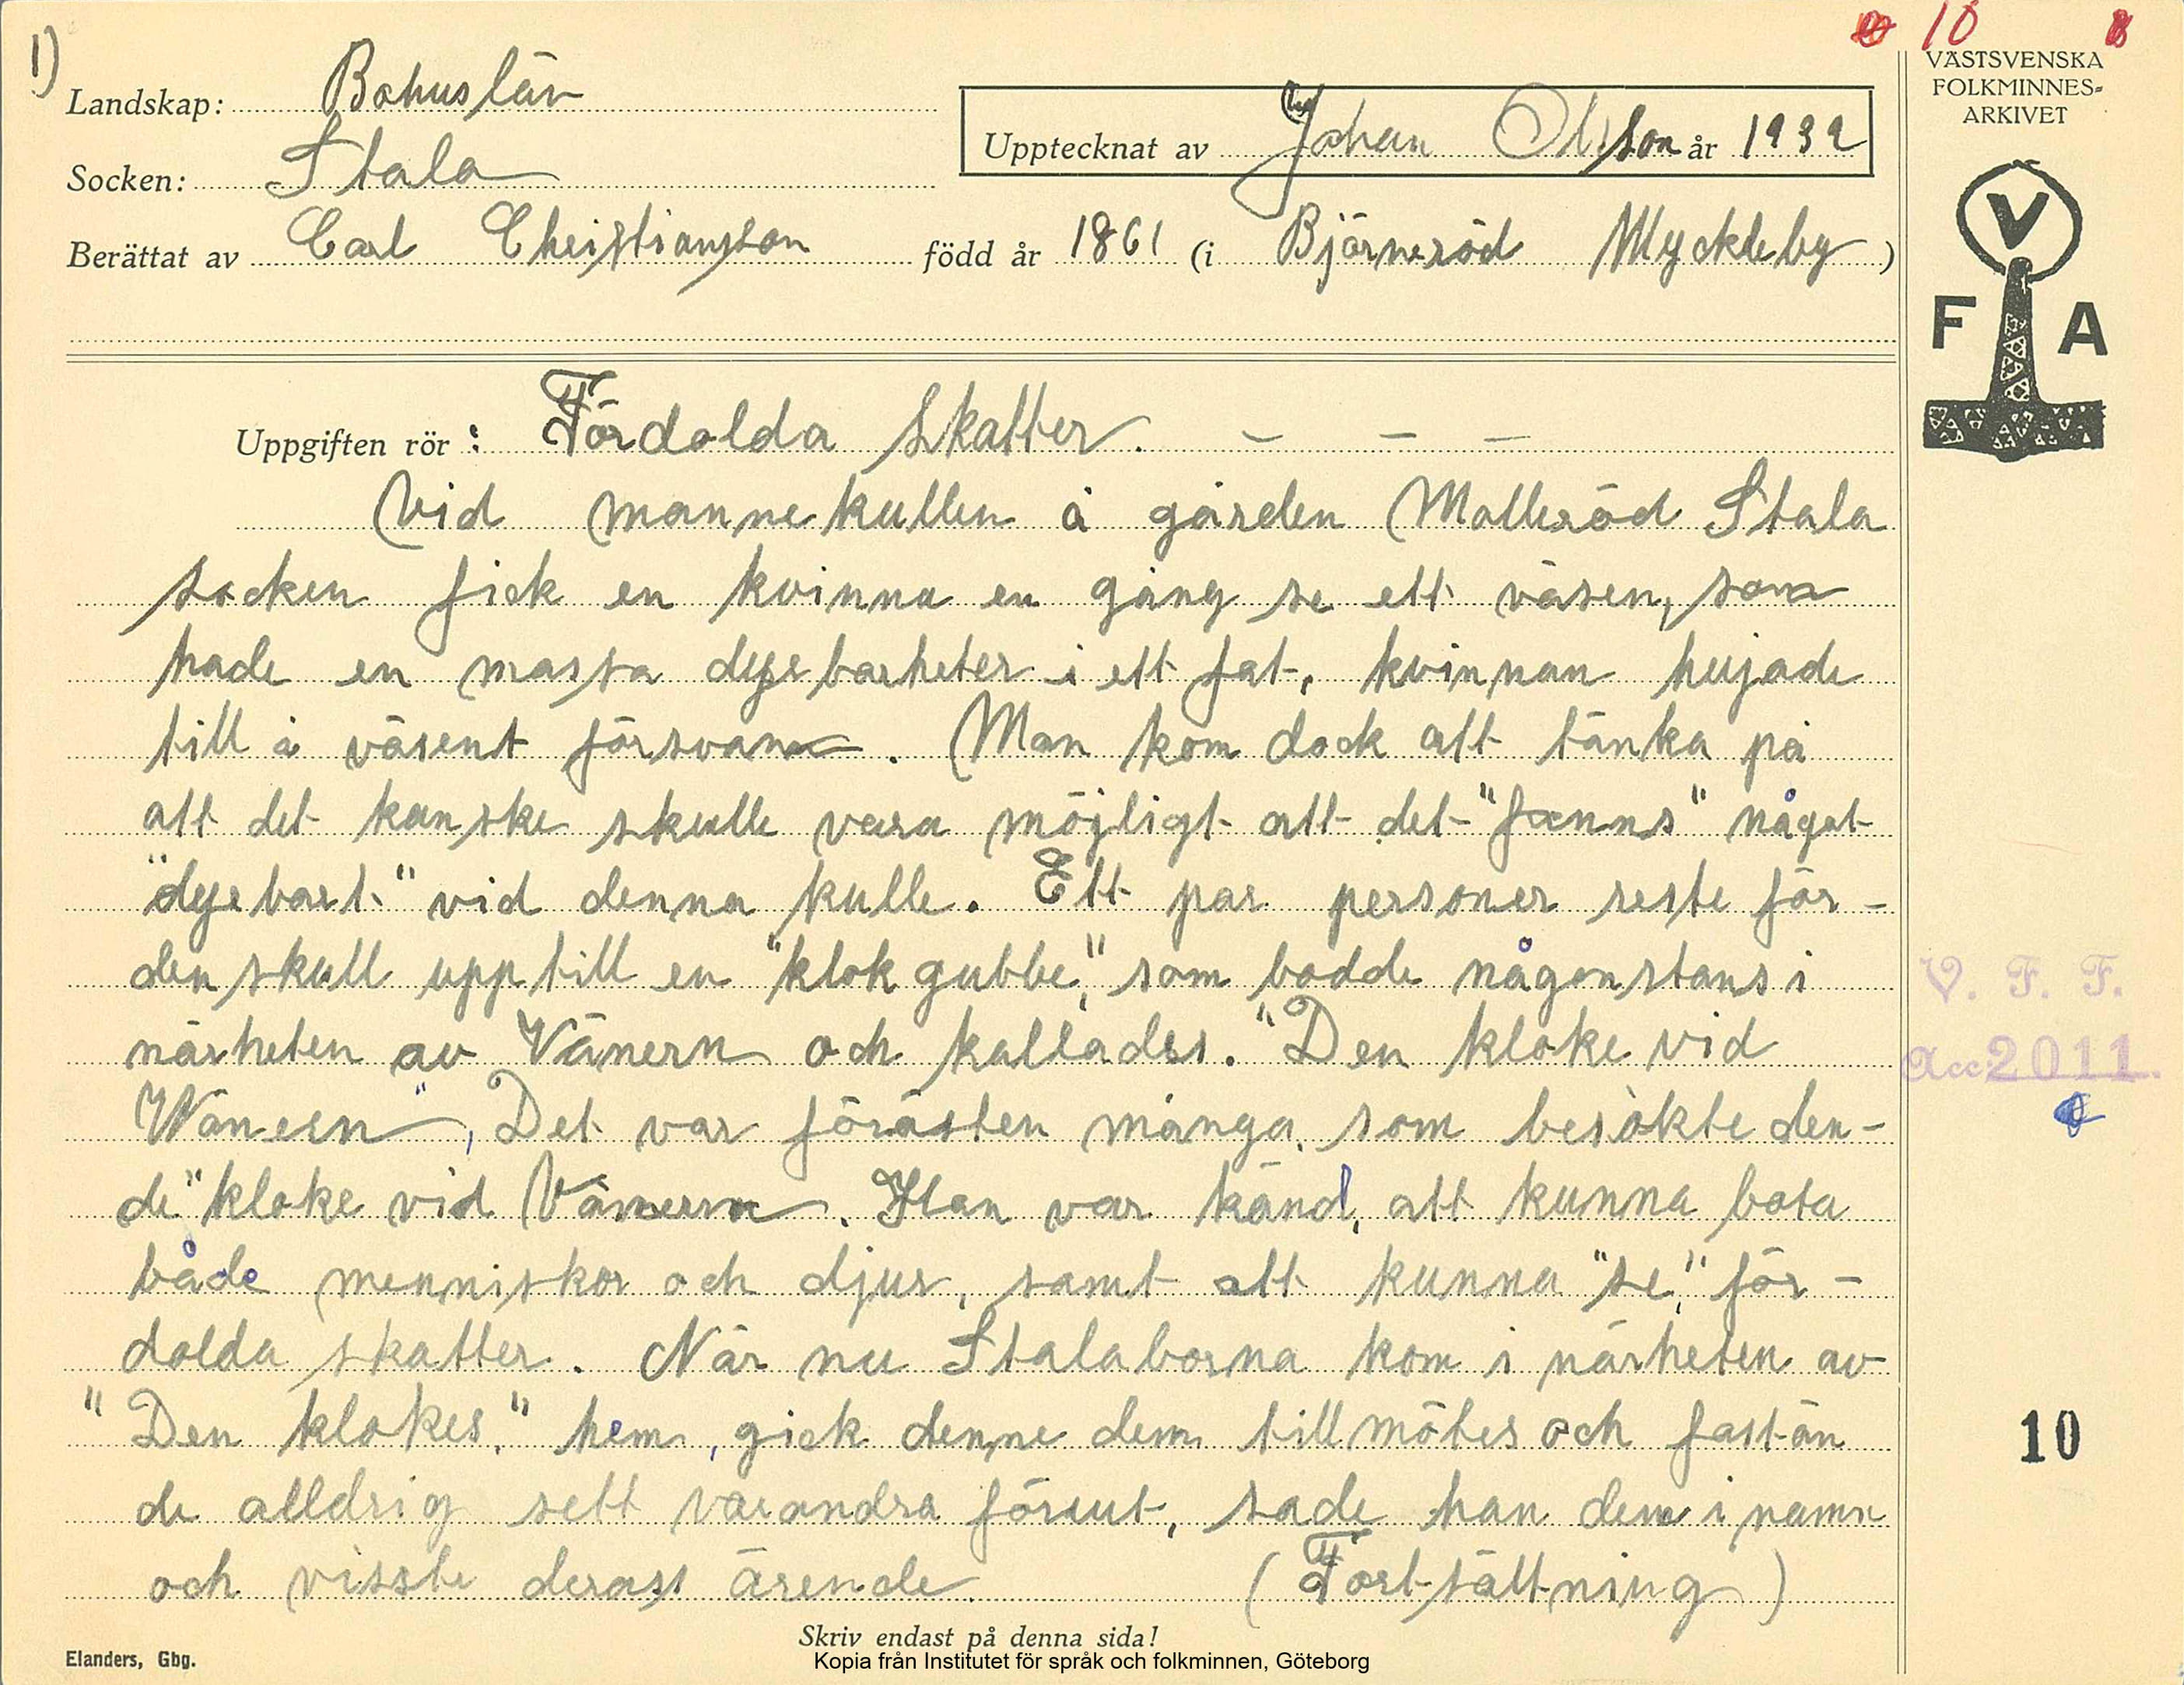 1)
10
VÄSTSVENSKA
FOLKMINNES-
ARKIVET
Landskap: Bohuslän
Upptecknat av Johan Olsson år 1932
Socken: Stala
Berättat av Carl Christiansson född år 1861 (i Björneröd Myckleby)
V
F A
Uppgiften rör: Fördolda skatter. — — —
Vid mannekullen å gården Malleröd Stala
socken fick en kvinna en gång se ett väsen, som
hade en massa dyrbarheter i ett fat, kvinnan hujade
till å väsent försvann. Man kom dock att tänka på
att det kanske skulle vara möjligt att det "fanns" något
"dyrbart" vid denna kulle. Ett par personer reste för-
den skull upp till en "klok gubbe," som bodde någonstans i
närheten av Vänern och kallades. "Den kloke vid
Wänern", Det var förästen många, som besökte den-
de "kloke vid Vänern. Han var känd, att kunna bota
både menniskor och djur, samt att kunna "se," för-
dolda skatter. När nu Stalaborna kom i närheten av
"Den klokes," hem, gick denne dem till mötes och fastän
de alldrig sett varandra förut, sade han dem i namn
och visste derass ärende. (Fortsättning)
V. F. F.
Acc 2011.
10
Skriv endast på denna sida!
Elanders, Gbg.
Kopia från Institutet för språk och folkminnen, Göteborg